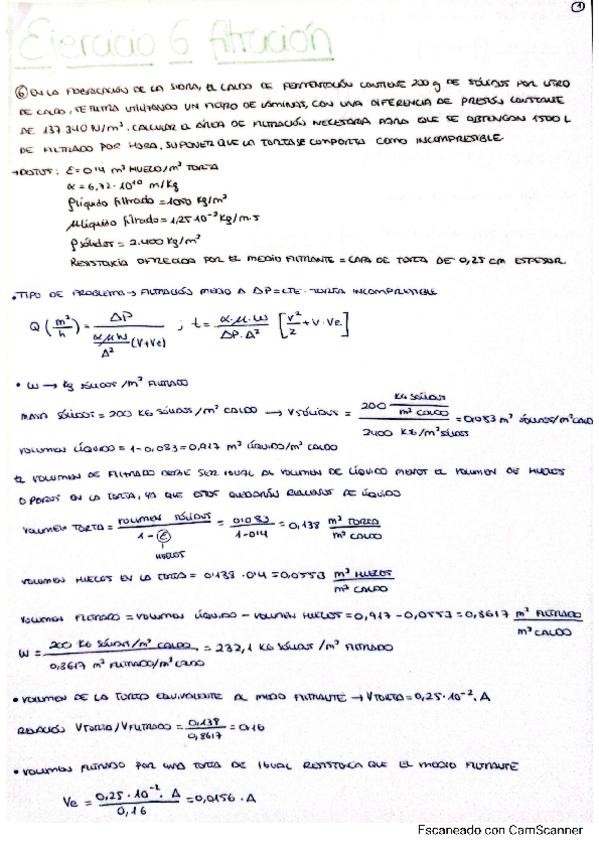 1
Ejercicio 6 filtración
⑥ EN LA FABRICACIÓN DE LA SIDRA, EL CALDO DE FERMENTACIÓN CONTIENE 200 g DE SÓLIDOS POR LITRO
DE CALDO, SE FILTRA UTILIZANDO UN FILTRO DE LÁMINAS, CON UNA DIFERENCIA DE PRESIÓN CONSTANTE
DE 137 340 N/m². CALCULAR EL ÁREA DE FILTRACIÓN NECESARIA PARA QUE SE OBTENGAN 1500 L
DE FILTRADO POR HORA, SUPONER QUE LA TORTA SE COMPORTA COMO INCOMPRESIBLE
→ DATOS: ε = 0'4 m³ HUECO/m³ TORTA
α = 6,72·10¹⁰ m/kg
ρlíquido filtrado = 1000 kg/m³
μlíquido filtrado = 1,25·10⁻³ kg/m·s
ρsólidos = 2.400 kg/m³
RESISTENCIA OFRECIDA POR EL MEDIO FILTRANTE = CAPA DE TORTA DE 0,25 cm ESPESOR.
• TIPO DE PROBLEMA → FILTRACIÓN MEDIO A ΔP = CTE. TORTA INCOMPRESIBLE
Q (m³/h) = ΔP / (α·μ·W/A² (V+Ve)) ; t = α·μ·W / ΔP·A² [V²/2 + V·Ve]
• W → kg SÓLIDOS/m³ FILTRADO
MASA SÓLIDOS = 200 KG SÓLIDOS/m³ CALDO → V SÓLIDOS = 200 KG SÓLIDOS/m³ CALDO / 2400 KG/m³ SÓLIDOS = 0,083 m³ SÓLIDOS/m³ CALDO
VOLUMEN LÍQUIDO = 1 - 0,083 = 0,917 m³ LÍQUIDO/m³ CALDO
EL VOLUMEN DE FILTRADO DEBE SER IGUAL AL VOLUMEN DE LÍQUIDO MENOS EL VOLUMEN DE HUECOS
O POROS EN LA TORTA, YA QUE ESTOS QUEDARÁN RELLENOS DE LÍQUIDO
VOLUMEN TORTA = VOLUMEN SÓLIDOS / 1 - ε = 0'083 / 1 - 0'4 = 0,138 m³ TORTA / m³ CALDO
HUECOS
VOLUMEN HUECOS EN LA TORTA = 0'138 · 0'4 = 0,0553 m³ HUECOS / m³ CALDO
VOLUMEN FILTRADO = VOLUMEN LÍQUIDO - VOLUMEN HUECOS = 0,917 - 0,0553 = 0,8617 m³ FILTRADO / m³ CALDO
W = 200 KG SÓLIDOS/m³ CALDO / 0,8617 m³ FILTRADO/m³ CALDO = 232,1 KG SÓLIDOS/m³ FILTRADO
• VOLUMEN DE LA TORTA EQUIVALENTE AL MEDIO FILTRANTE → VTORTA = 0,25·10⁻²·A
RELACIÓN VTORTA/VFILTRADO = 0,138 / 0,8617 = 0,16
• VOLUMEN FILTRADO POR UNA TORTA DE IGUAL RESISTENCIA QUE EL MEDIO FILTRANTE
Ve = 0,25·10⁻²·A / 0,16 = 0,0156·A
Escaneado con CamScanner